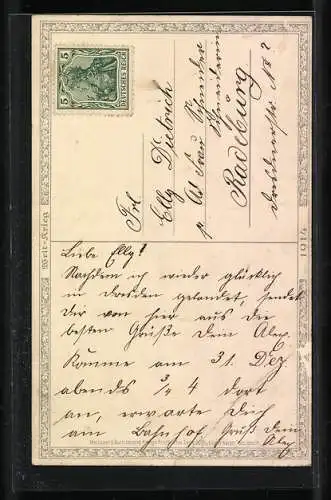 5 5
DEUTSCHES REICH
Frl
Elly Dietrich
Ad Frau Schneider
Schneiderin
Radeburg
Dresdnerstr No 2
Welt-Krieg
1914
Liebe Elly!
Nachdem ich wieder glücklich
in Dresden gelandet, sendet
Dir von hier aus die
besten Grüße Dein Alex.
Komme am 31. Dez
abends 3/4 4 dort
an, erwarte Dich
am Bahnhof. Gruß Dein
Alex